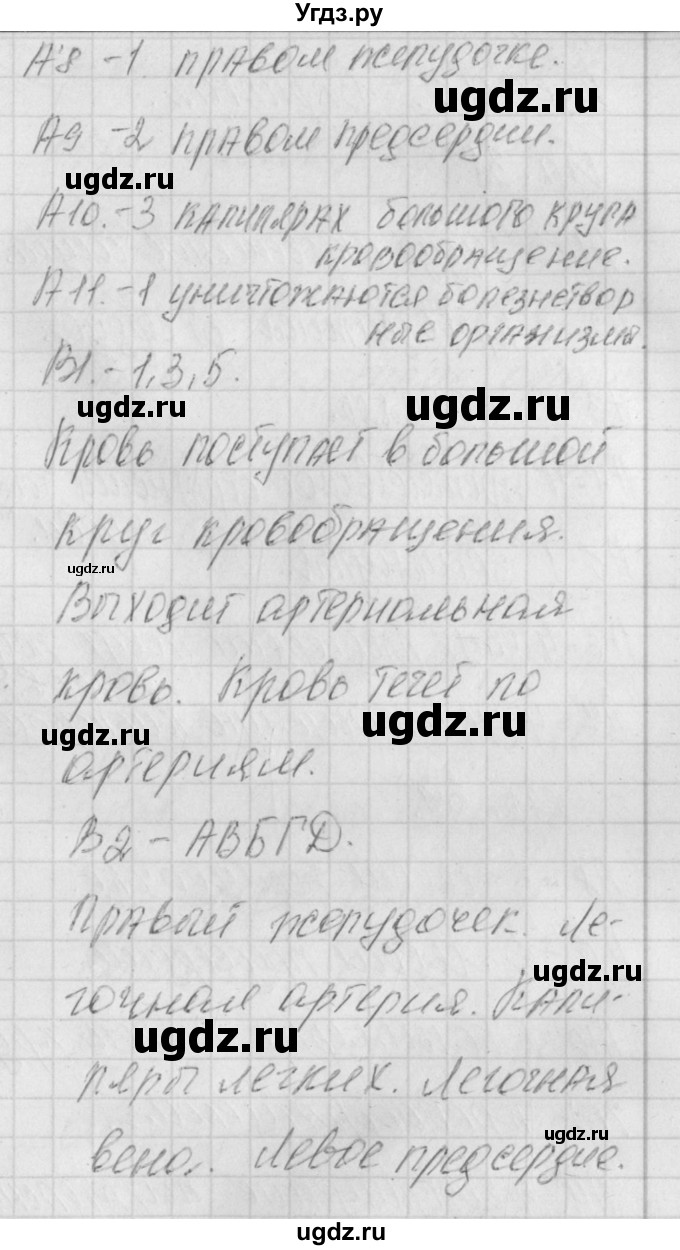 Угдз.ру
А8 -1. правом желудочке.
ugdz.ru
А9 -2 правом предсердии.
ugdz.ru
А10.-3 капилярах большого круга
кровообращение.
А11.-1 уничтожаются болезнетвор
ные организмы.
В1.-1,3,5.
ugdz.ru
ugdz.ru
Кровь поступает в большой
круг кровообращения.
ugdz.ru
Выходит артериальная
кровь. Кровь течет по
ugdz.ru
ugdz.ru
артериям.
В2-АВБГД.
Правый желудочек. Ле-
ugdz.ru
гочная артерия. Капи-
ugdz.ru
ляры легких. Легочная
ugdz.ru
вена. Левое предсердие.
ugdz.ru